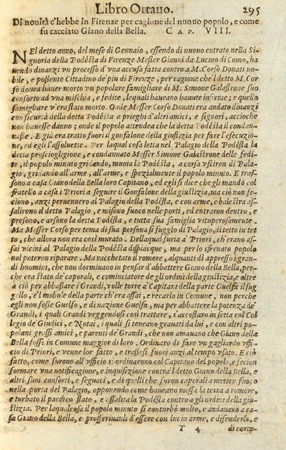 Libro Ottauo. 295
Di nouità c'hebbe in Firenze per cagione del nuouo popolo, e come
fu cacciato Giano della Bella. CAP. VIII.
NEl detto anno, del mese di Gennaio, essendo di nuouo entrato nella Si-
gnoria della Podestà di Firenze Messer Gianni da Lucino di Como, ha
uendo dinanzi vn processo d'vna accusa fatta contro a M. Corso Donati no-
bile, e possente Cittadino de' piu di Firenze, per ragione che i detto M. Cor
so douea hauer morto vn popolare famigliare di M. Simone Galastrone suo
consorto ad vna mischia, e fedite, lequali haueano hauute insieme, e quello
famigliare v'era stato morto. Onde Messer Corso Donati era andato dinanzi
con sicurtà della detta Podestà a prieghi d'altri amici, e signori, accioche
non hauesse danno; onde il popolo attendea che la detta Podestà il condan-
nasse. E già era tratto fuori il gonfalone della giustitia per fare l'esecutio-
ne, ed egli l'assoluette. Per laqual cosa letta nel Palagio della Podestà la
detta prosciogligione, e condannato Messer Simone Galastrone delle fedi-
te, il popolo minuto gridando, muoia la Podestà, a cosa vscirono di Pala-
gio, gridando all'arme, all'arme, e spetialmente il popolo minuto. E tras-
sono a casa Giano della Bella loro Capitano, ed egli si dice che mandò col
fratello a casa i Priori a seguire il Gonfalone della giustitia, ma ciò non fe-
ciono, anzi peruennero al Palagio della Podestà, e con arme, e balestra as-
salirono il detto Palagio, e missono fuoco nelle porti, ed entrarono dentro, e
presono, e rubaro la detta Podestà, e tutta sua famiglia vituperosamente.
Ma Messer Corso per tema di sua persona si fuggìo di Palagio, di tetto in tet-
to, che allhora non era così murato. Dellaqual furia a' Priori, ch'erano as-
sai vicini al Palagio della Podestà dispiacque, ma per lo sfrenato popolo
nol poterono riparare. Ma racchetato il romore, alquanti dì appresso i gran-
di huomini, che non dormiuano in pensare d'abbattere Giano della Bella, pe-
che era stato de' caporali, e cominciatore de gli ordini della giustitia, ed oltre
a ciò per abbassare i Grandi, volle torre a' Capitani della parte Guelfa il sug-
gello, e'l mobile della parte ch'era assai, e recarlo in Comune, non perche
egli non fosse Guelfo, e di natione Guelfa, ma per abbattere la potenza de'
Grandi, i quali Grandi veggendosi così trattare, s'accostaro in setta col Col-
legio de Giudici, e Notai, i quali si teneano grauati da lui, e con altri po-
polani grassi amici, e parenti de' Grandi, che non amauano che Giano della
Bella fosse in Comune maggior di loro. Ordinaro di fare vn gagliardo vffi-
cio di Priori, e venne lor fatto, e trassesi fuori anzi al tempo vsato. E ciò
fatto, come furono all'vfficio s'ordinarono col Capitano del popolo, e fecion
formare vna notificagione, e inquisitione contra il detto Giano della Bella, ed
altri suoi consorti, e seguaci, e di quelli che furon caporali a metter fuoco
nella porta del Palagio, opponendo come haueano messa la terra a romore,
e turbato il pacifico stato, e assalita la Podestà contro a gli ordini della giu-
stitia. Per laqualcosa il popolo minuto si conturbò molto, e andauano a ca-
sa Giano della Bella, e profferiuansi d'essere con lui in arme, e difende-
T 4 di corre-